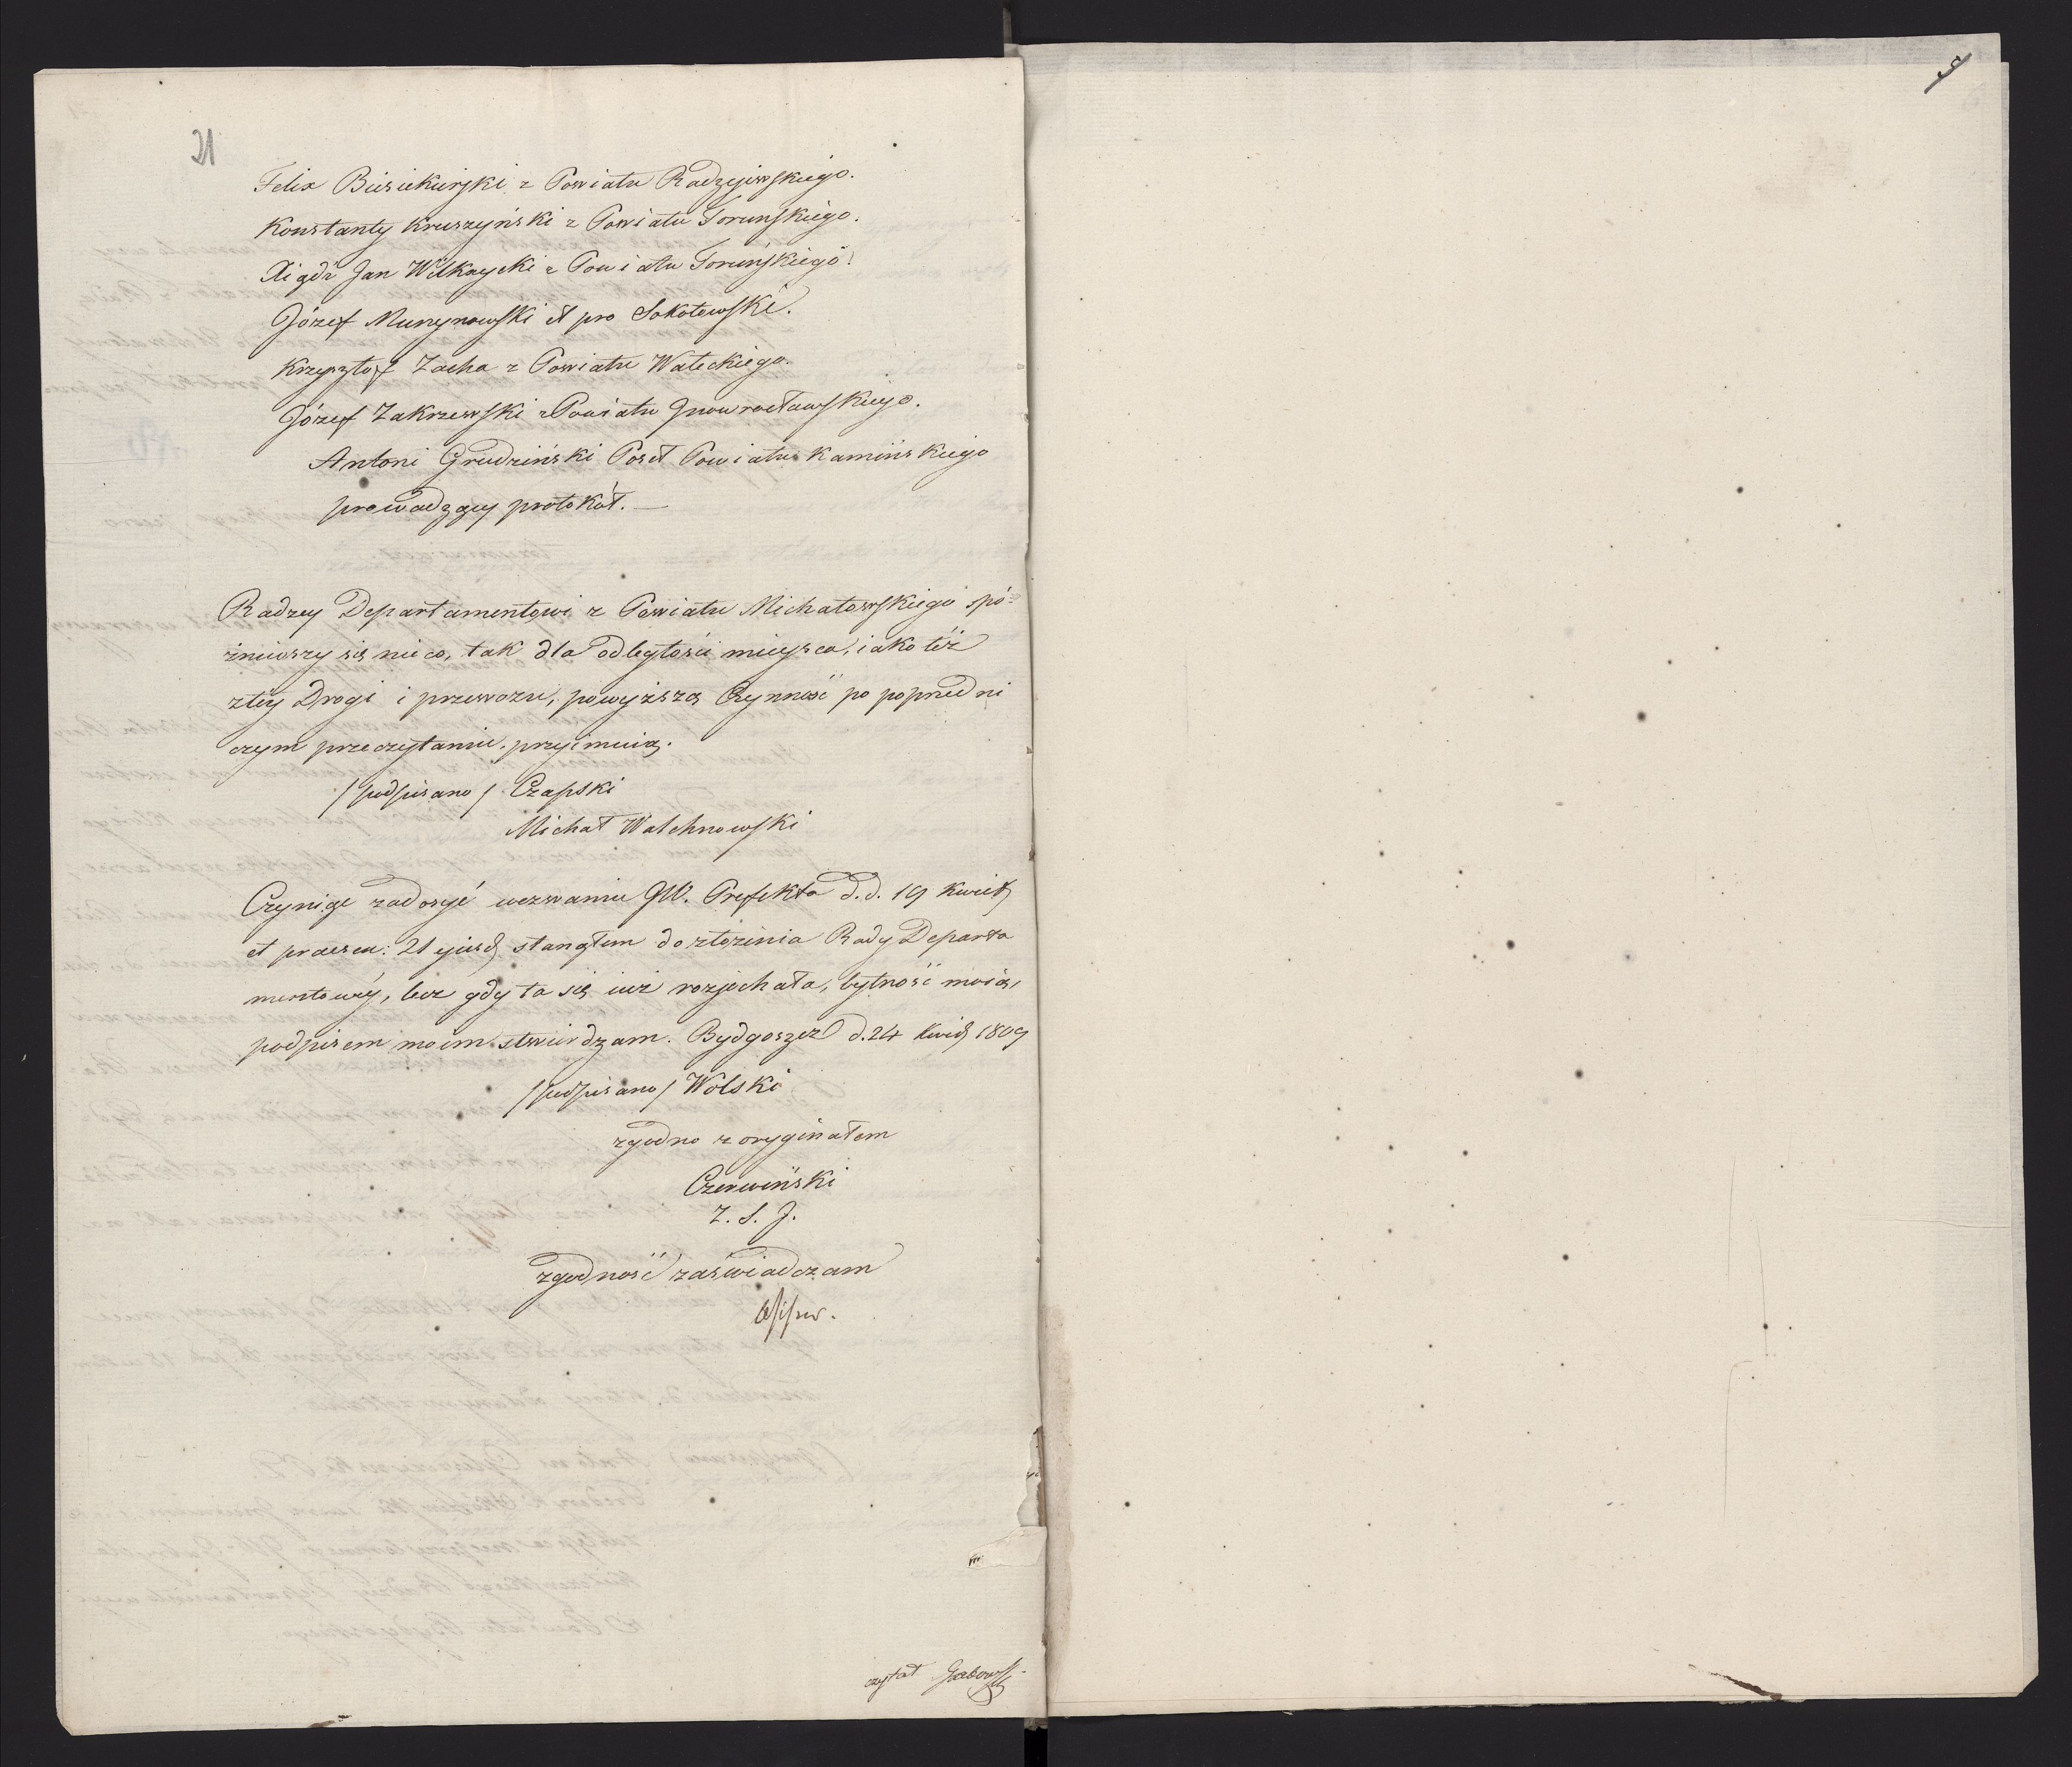 21
Felix Biesiekierski z Powiatu Radzyiewskiego.
Konstanty Kruszyński z Powiatu Toruńskiego.
Xiądz Jan Wilkxycki z Powiatu Toruńskiego.
Józef Murzynowski et pro Sokołowski.
Krzysztof Zacha z Powiatu Wałeckiego.
Józef Zakrzewski z Powiatu Jnowrocławskiego.
Antoni Grudziński Poseł Powiatu Kamińskiego
prowadzący protokół. —
Radzcy Departamentowi z Powiatu Michałowskiego spó-
zniwszy się nieco, tak dla odległości mieysca, iako też
złey Drogi i przewozu, powyższą Czynność po poprzedni
czym przeczytaniu. przyimuią.
/podpisano/ Czapski
Michał Walchnowski
Czyniąc zadosyć wezwaniu JW. Prefekta d.d. 19 Kwiet.
et praesen: 21 ejusd. stanąłem do złożenia Rady Departa
mentowéy, lecz gdy ta się iuż rozjechała, bytność moią,
podpisem moim stwierdzam. Bydgoszcz d. 24 Kwiet. 1809
/podpisano/ Wolski
zgodno z oryginałem
Czerwiński
Z. S. J.
zgodność zaświadczam
czytał
5